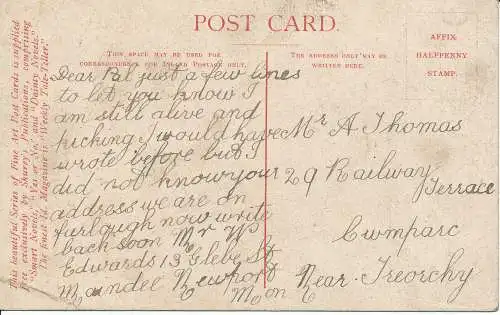 POST CARD.
THIS SPACE MAY BE USED FOR
CORRESPONDENCE FOR INLAND POSTAGE ONLY.
THE ADDRESS ONLY MAY BE
WRITTEN HERE.
AFFIX
HALFPENNY
STAMP.
This beautiful Series of Fine Art Post Cards is supplied
free exclusively by Shurey's Publications, comprising
"Smart Novels," "Yes or No," and "Dainty Novels."
The finest 1d. Magazine is "Weekly Tale-Teller."
Dear Pal just a few lines
to let you know I
am still alive and
kicking I would have
wrote before but I
did not know your
address we are on
furlough now write
back soon Mr W
Edwards 13 Glebe St
Newport
Mon
Mr A Thomas
29 Railway
Terrace
Cwmparc
Near Treorchy